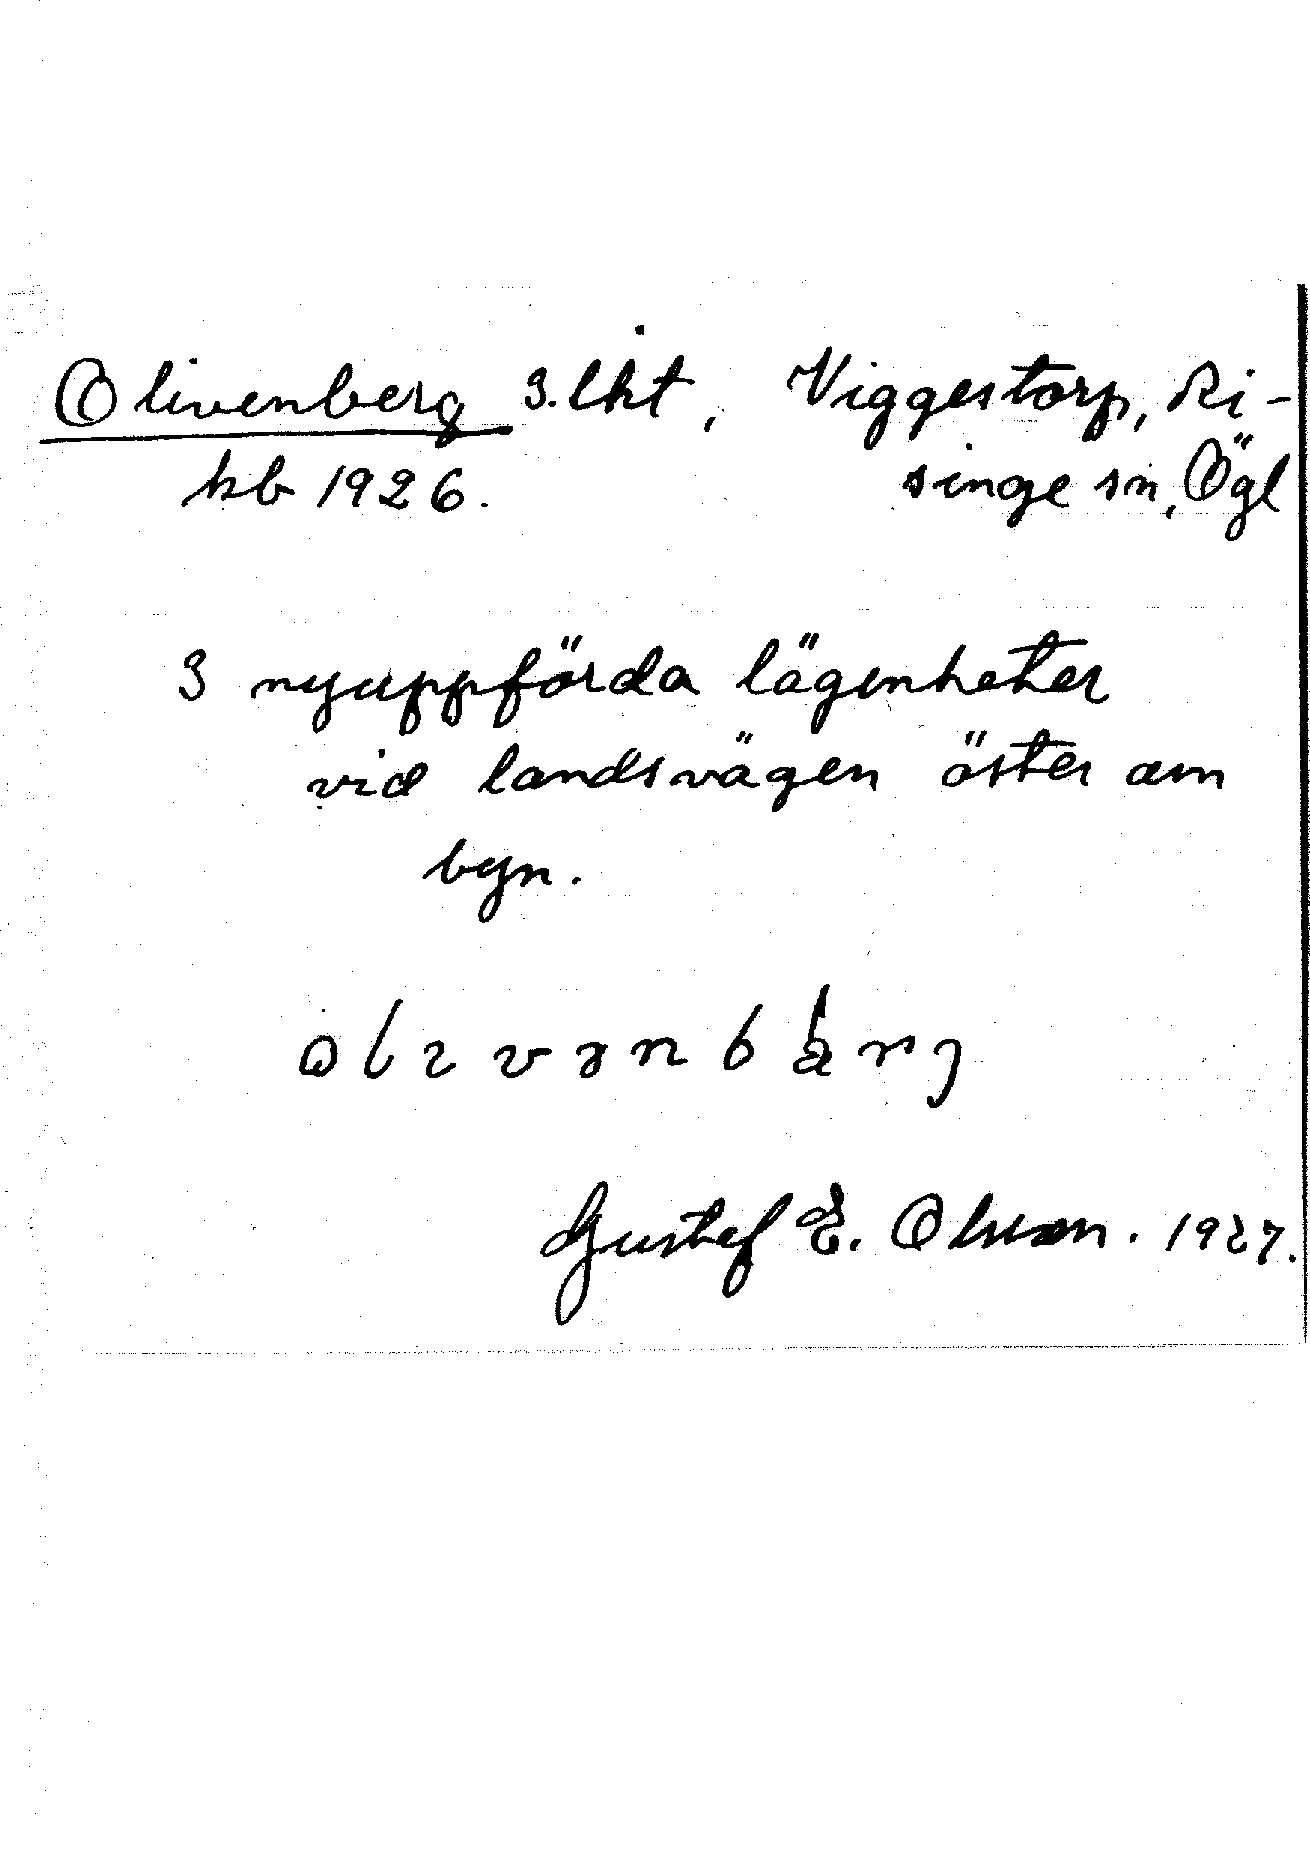 Olivenberg 3.lht, Viggestorp, Ri-
kb 1926. singe sn, Ögl
3 nyuppförda lägenheter
vid landsvägen öster om
byn.
Gustef E. Olsson. 1927.